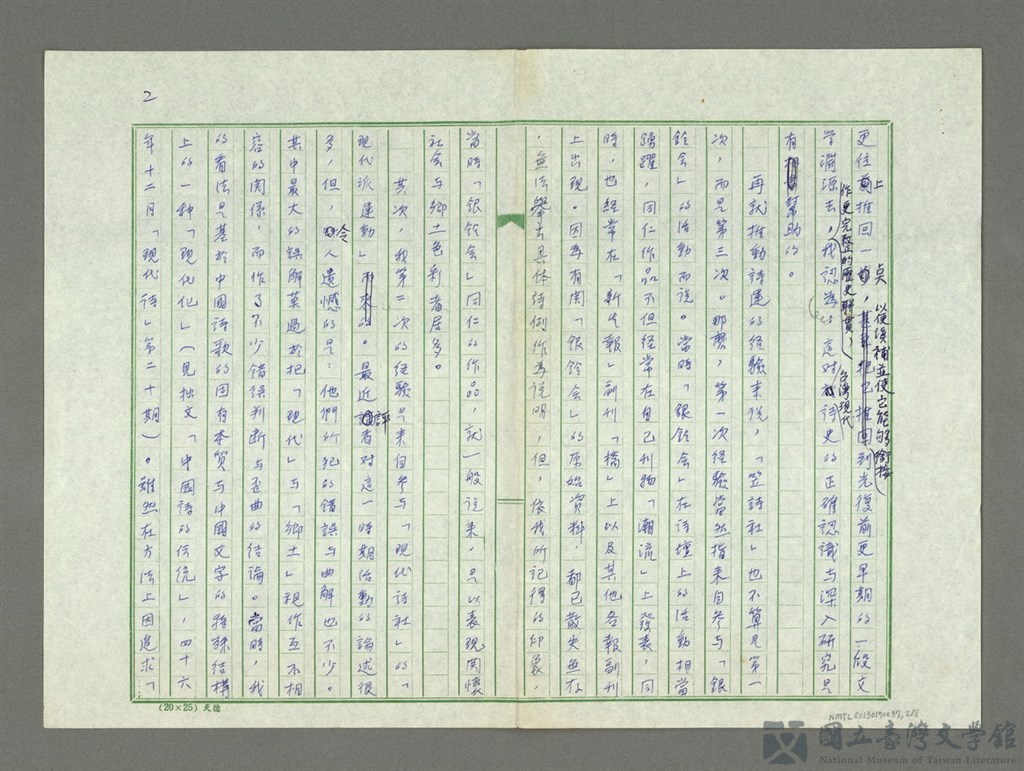 2
更往前推回一點,以便後補並使它能夠銜接上到光復前更早期的一般文
學淵源去,作更完整的歷史聯貫,我認為這對台灣現代詩史的正確認識與深入研究是
有幫助的。
再就推動詩運的經驗來說,「笠詩社」也不算是第一
次,而是第三次。那麼,第一次經驗當然指來自參与「銀
鈴會」的活動而說。當時「銀鈴會」在詩壇上的活動相當
踴躍,同仁作品不但經常在自己刊物「潮流」上發表,同
時,也經常在「新生報」副刊「橋」上以及其他各報副刊
上出現。因為有関「銀鈴会」的原始資料,都已散失無存
,無法舉出具体詩例作為說明,但,依我所記得的印象,
當時「銀鈴會」同仁的作品,就一般說來,是以表現関懷
社会与鄉土色彩者居多。
其次,我第二次的經驗是來自參与「現代詩社」的「
現代派運動」。最近評者對這一時期活動的論述很
多,但,令人遺憾的是:他們所犯的錯誤与曲解也不少。
其中最大的誤解莫過於把「現代」与「鄉土」視作互不相
容的関係,而作了不少錯誤判断与歪曲的结論。當時,我
的看法是基於中國詩歌的固有本質与中國文字的特殊结構
上的一种「現代化」(見拙文「中國詩的传统」,四十六
年十二月「現代詩」第二十期)。雖然在方法上因追求「
(20×25)天德
NMTL20130170037, 2/8
國立臺灣文學館
National Museum of Taiwan Literature